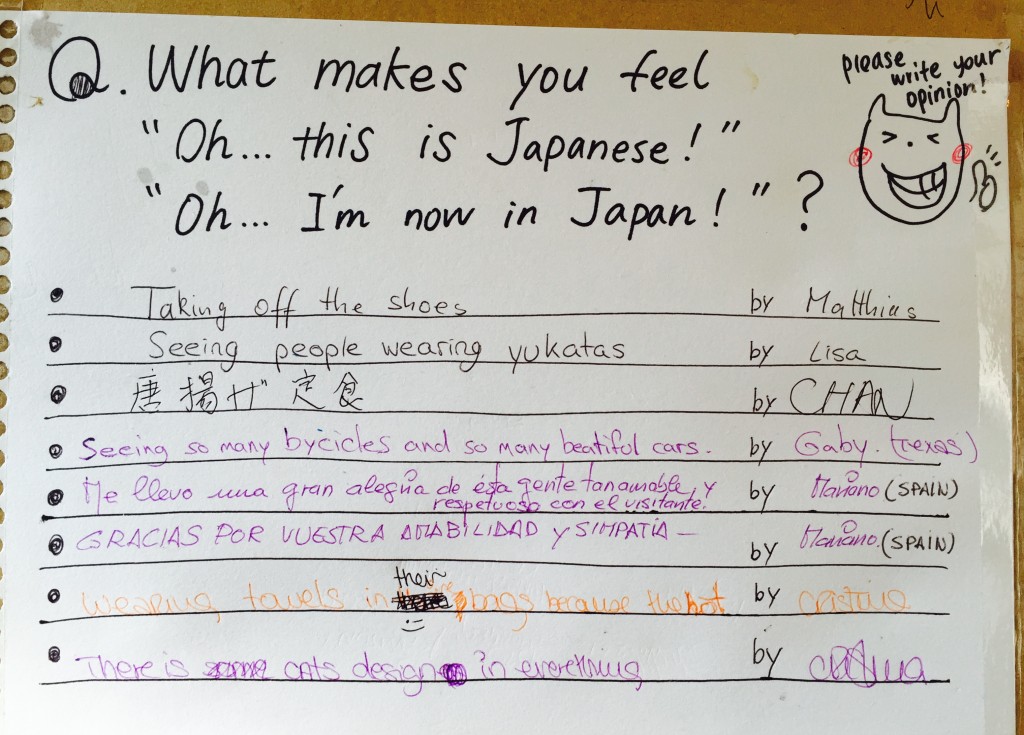 Q. What makes you feel
"Oh... this is Japanese!"
"Oh... I'm now in Japan!"?
please
write your
opinion!
• Taking off the shoes by Matthias
• Seeing people wearing yukatas by Lisa
• 唐揚げ 定食 by CHAN
• Seeing so many bycicles and so many beatiful cars. by Gaby. (texas)
• Me llevo una gran alegría de ésta gente tan amable, y
respetuoso con el visitante. by Mariano (SPAIN)
• GRACIAS POR VUESTRA AMABILIDAD y SIMPATÍA — by Mariano. (SPAIN)
their
• Wearing towels in bags because the hot by cristina
• There is cats design in everething by cristina